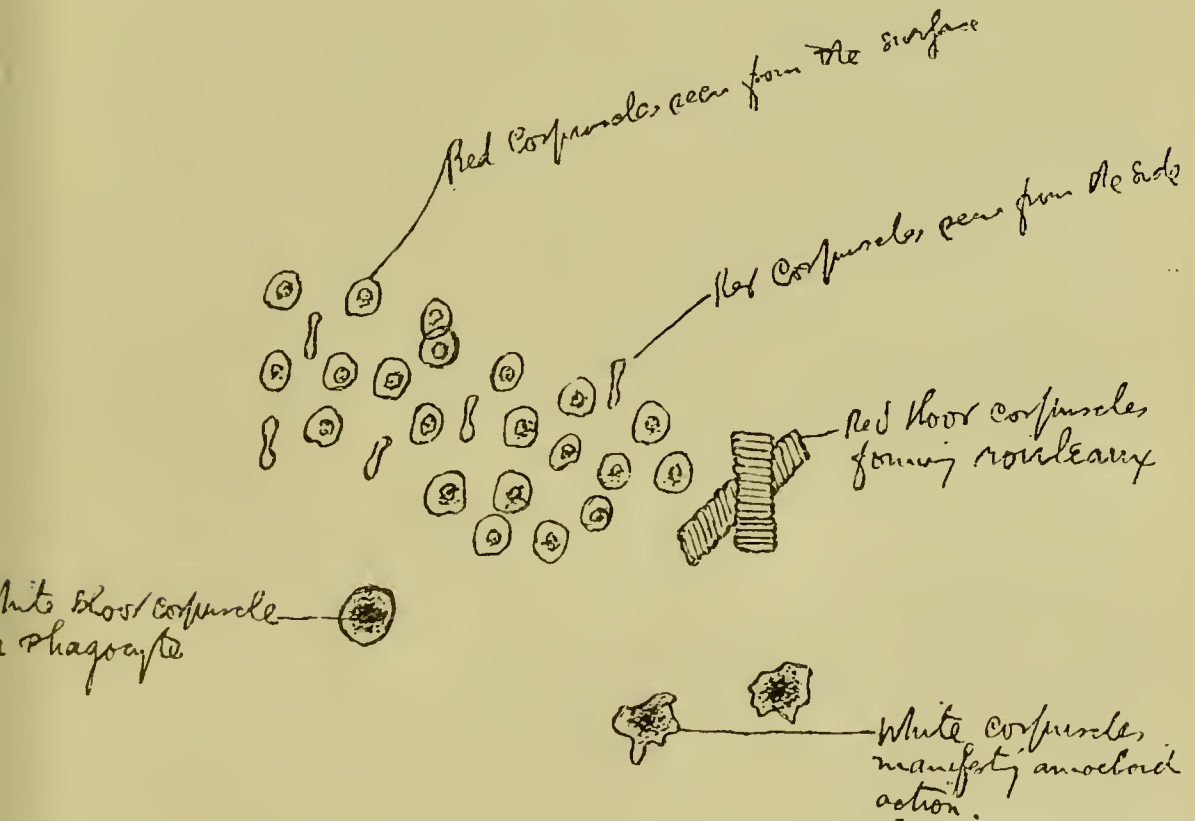 Red Corpuscles seen from the surface
Red Corpuscles seen from the side
Red blood corpuscles
forming rouleaux
hite blood corpuscle
phagocyte
White corpuscles
manifestg amoeboid
action.